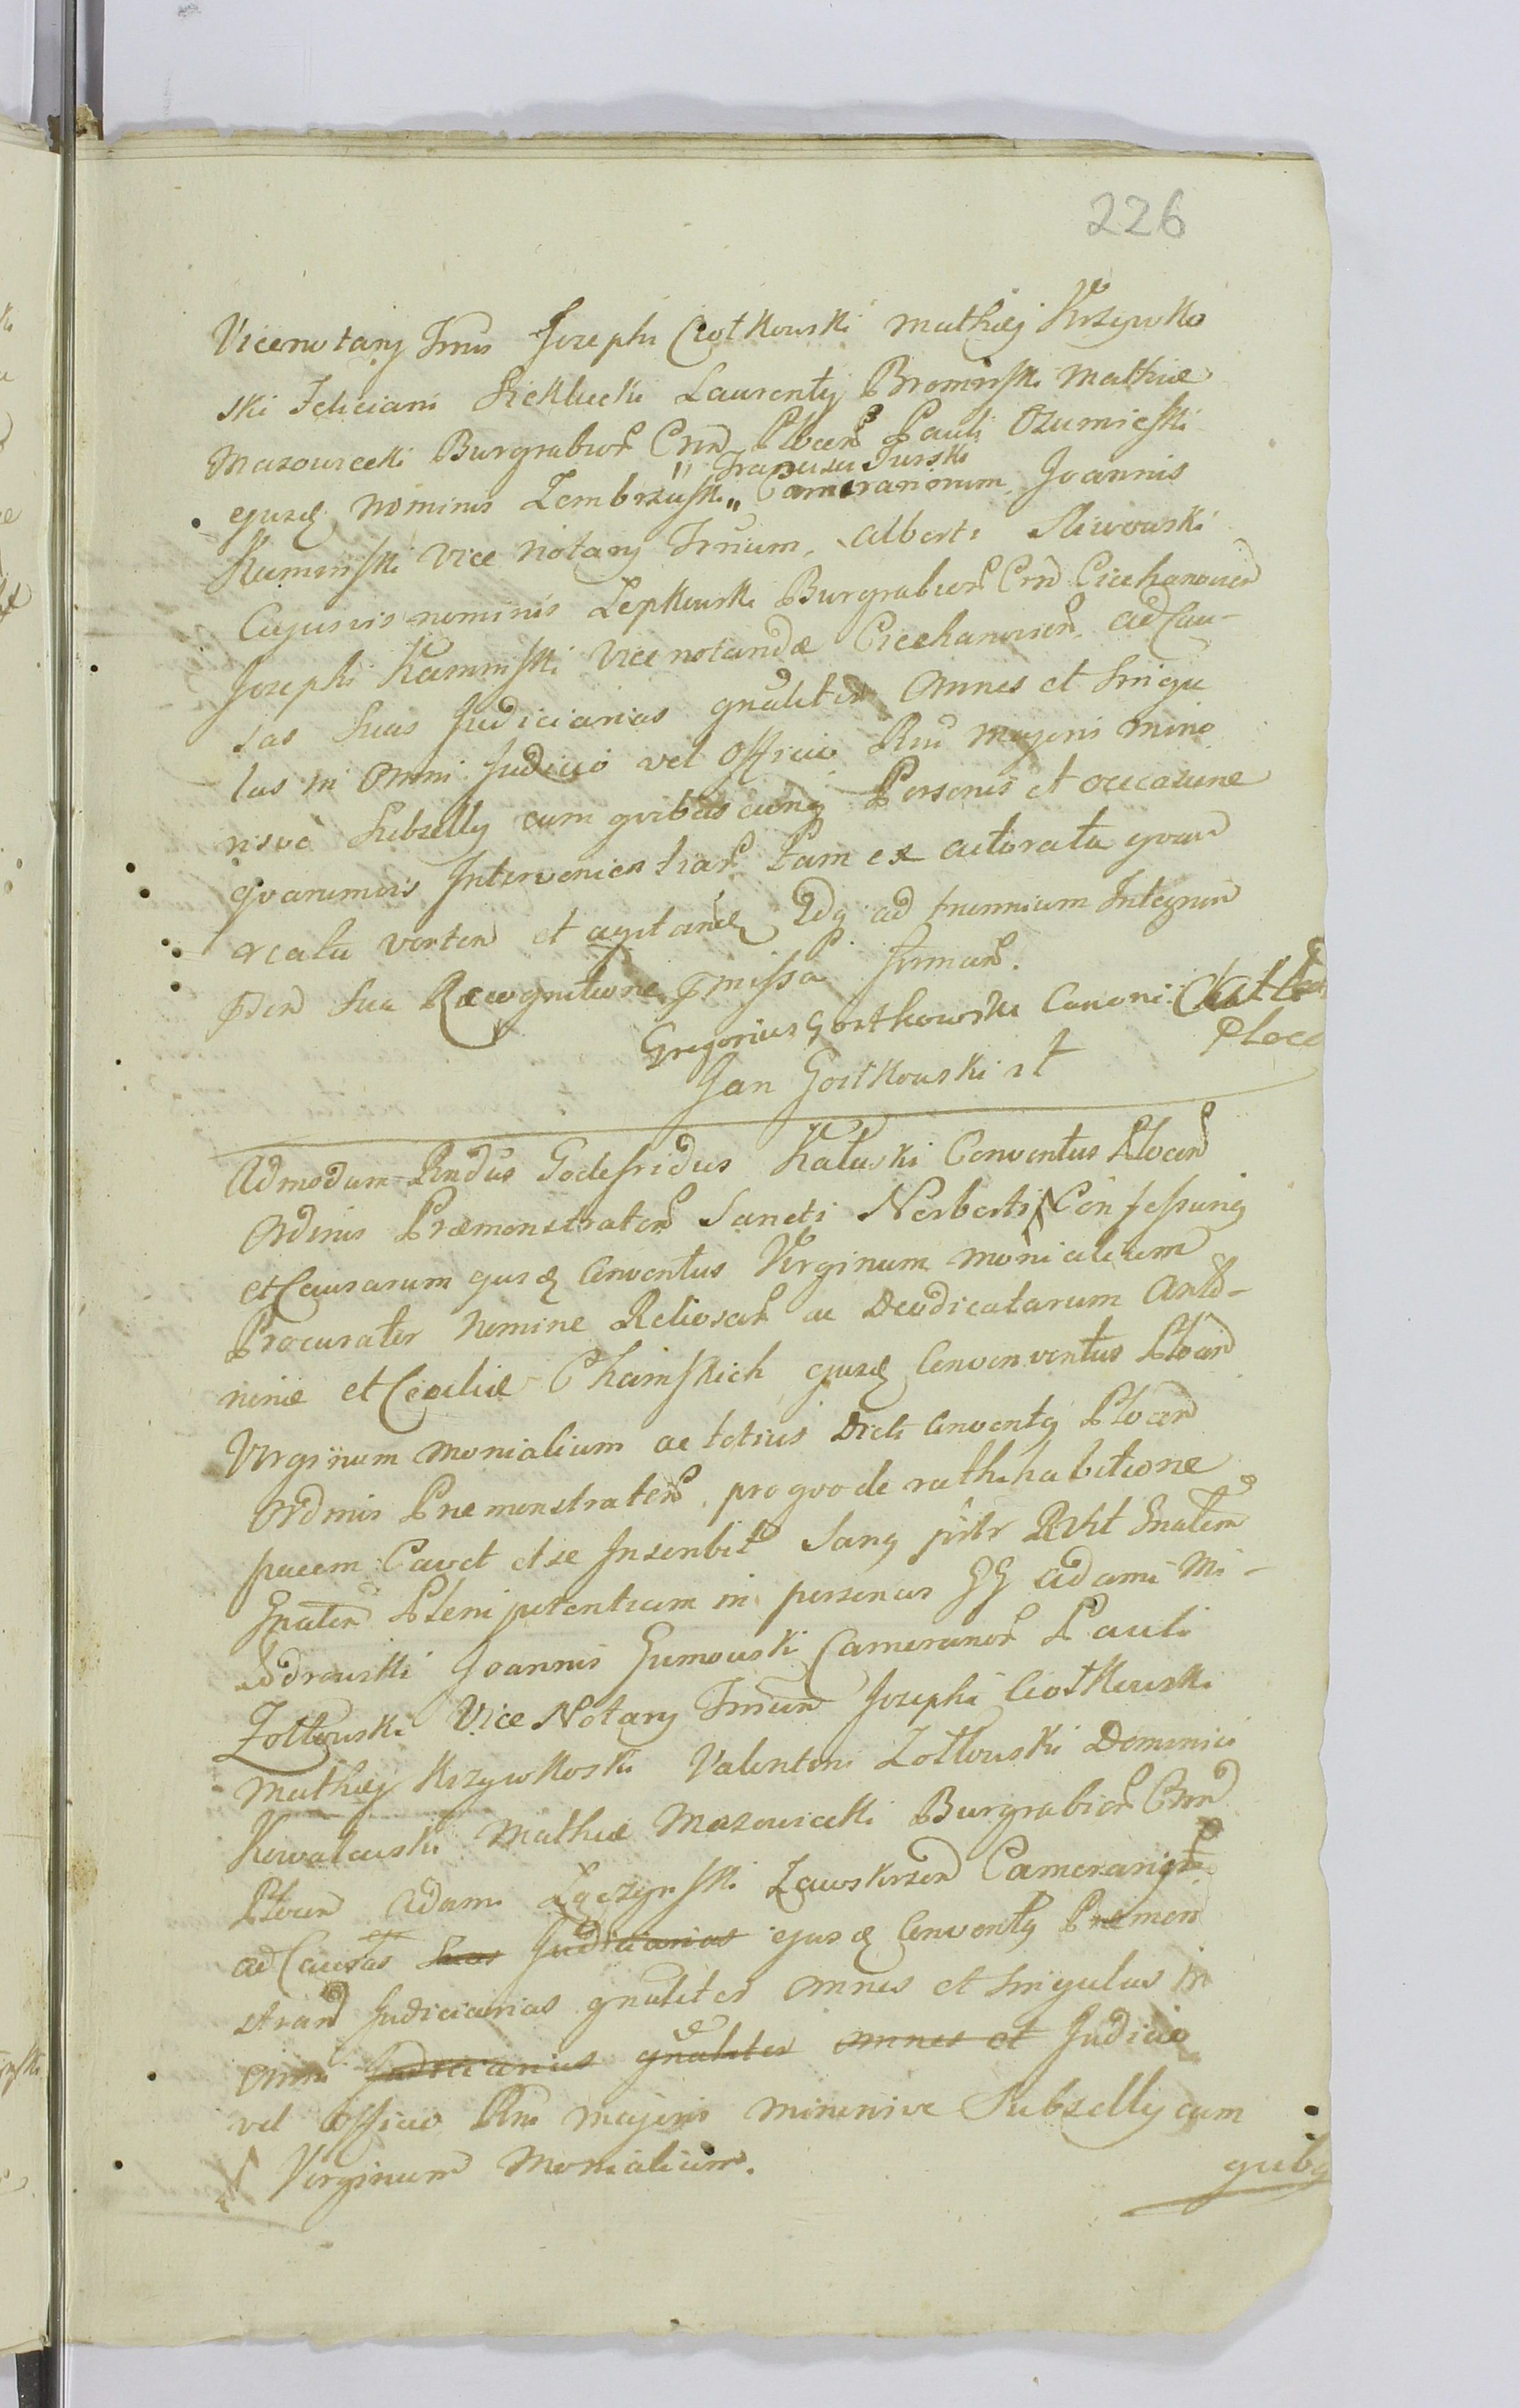 226
Vicenotarÿ Trnis Josephi Ciotkowski Mathiæ Krzywko
ski Feliciani Sieklucki Laurentÿ Brominski Mathiæ
Mazowiecki Burgrabior Crn Plocen Pauli Ozumieski
" Francisci Turski
ejusdē nominis Zembrzuski „ Cameranorum, Joannis
Kuminski Vice Notarÿ Trnium, Alberti Sliwowski
Cujusvis nominis Lepkowski Burgrabior Crn Ciechanovien
Josephi Kaminski Vicenotandæ Ciechanovien, ad Cau-
sas Suas Judiciarias gnaliter Omnes et Singu
las in Omni Judicio vel Officio Rni Majoris mino
risve Subsellÿ cum qvibuscunq Personis et occasione
qvarumvis Interveniential tam ex actoratu qvam
reatu verten et agitandē Idq ad triennium Integrum
Sua Recognitione pmissa
Gregorius Gostkowski Canoni: Cath
Ploce
Jan Gostkowski
Admodum Rndus Godefridus Kałuski Conventus Plocen
Ordinis Præmonstraten Sancti Norberti Confessariq
et Causarum ejusdē Conventus Virginum monialium
Procurator Nomine Reliosar ac Deodicatarum Anto-
ninæ et Ceciliæ Chamskich ejusdē Convenventus Plocen
Virginum Monialium ac totius Dicti Conventq Plocen
Ordinis Præmonstraten, pro qvo de rathihabitione
pacem Cavet et se Inscribit Sanq Gnalem
Gnalem Plenipotentiam in personas GG Adami Mi-
Joannis Gumowski Cameranor Pauli
Zołtowski Vice Notarÿ Trnium Josephi Ciotkowski
Mathiæ Krzywkoski Valentini Zołtowski Dominici
Kowalewski Mathiæ Mazowiecki Burgrabior Crn
Plocen Adami Łączynski Zawskrzen
ad Causas Suas Judiciarias ejusdē Conventq Præmon
stran Judiciarias gnaliter Omnes et Singulas in
Omni Judiciarias gnaliter omnes et Judicio
vel Officio Rni majoris minorisve Subsellÿ cum
Virginum Monialium.
quibq